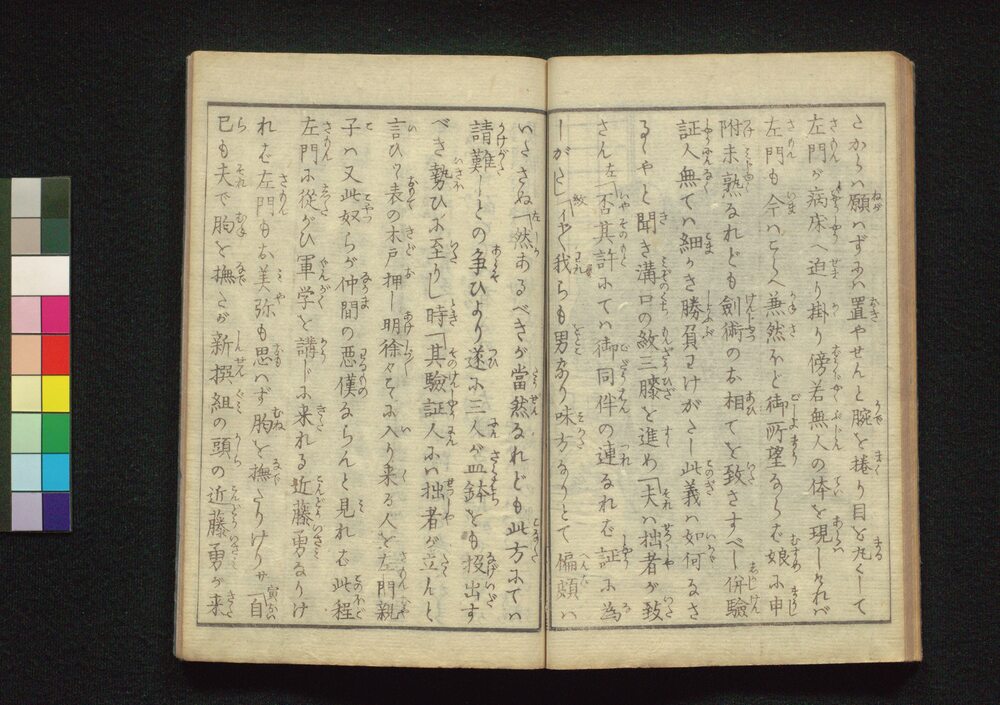 さからハ願ハずみハ置やせんと腕を捲り目を丸くして
左門が病床へ迫り掛り傍若無人の体を現しければ
左門も今ハこらへ兼然ほど御所望ならむ娘に申
附未熟なれども劍術のお相てを致さすべし併驗
証人無てハ細かき勝負わけがたし此義ハ如何なさ
るゝやと聞き溝口の紋三膝を進め「夫ハ拙者が致
さん左「否其許にてハ御同伴の連なれむ証に為
しがたし紋「イヤ我らも男なり味方なりとて偏頗ハ
いたさぬ「然あるべきが當然なれども此方にてハ
請難しとの争ひより遂に三人が皿鉢をも投出す
べき勢ひに至りし時「其驗証人にハ拙者が立んと
言ひつゝ表の木戸押し明徐々と入り来る人を左門親
子ハ又此奴らが仲間の悪僕ならんと見れむ此程
左門に從がひ軍学を講じに来れる近藤勇なりけ
れむ左門もお美弥も思ハず胸を撫たりけりサ「自
己も夫で胸を撫たが新撰組の頭の近藤勇が来